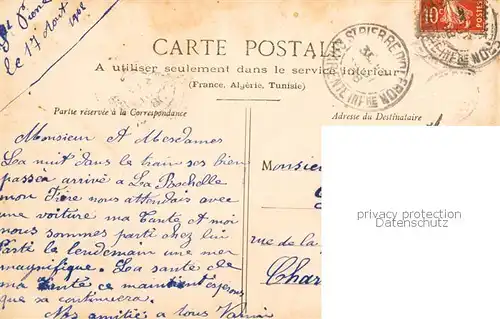 St Pierre
le 17 Août 1908
10c
CARTE POSTALE
A utiliser seulement dans le service intérieur
(France, Algérie, Tunisie)
ST PIERRE D'OLERON
Partie réservée à la Correspondance
Adresse du Destinataire
Monsieur A Mesdames
La nuit dans le train ses bien
passée arrivé a La Rochelle
mon Frère nous attendais avec
une voiture ma Tante et moi
nous sommes parti chez lui
Parti le lendemain une mer
magnifique. La santé de
ma Tante ce maintient esperons
que sa continuera.
Nos amitié a tous
Monsie
rue de la
Char
privacy protection
Datenschutz